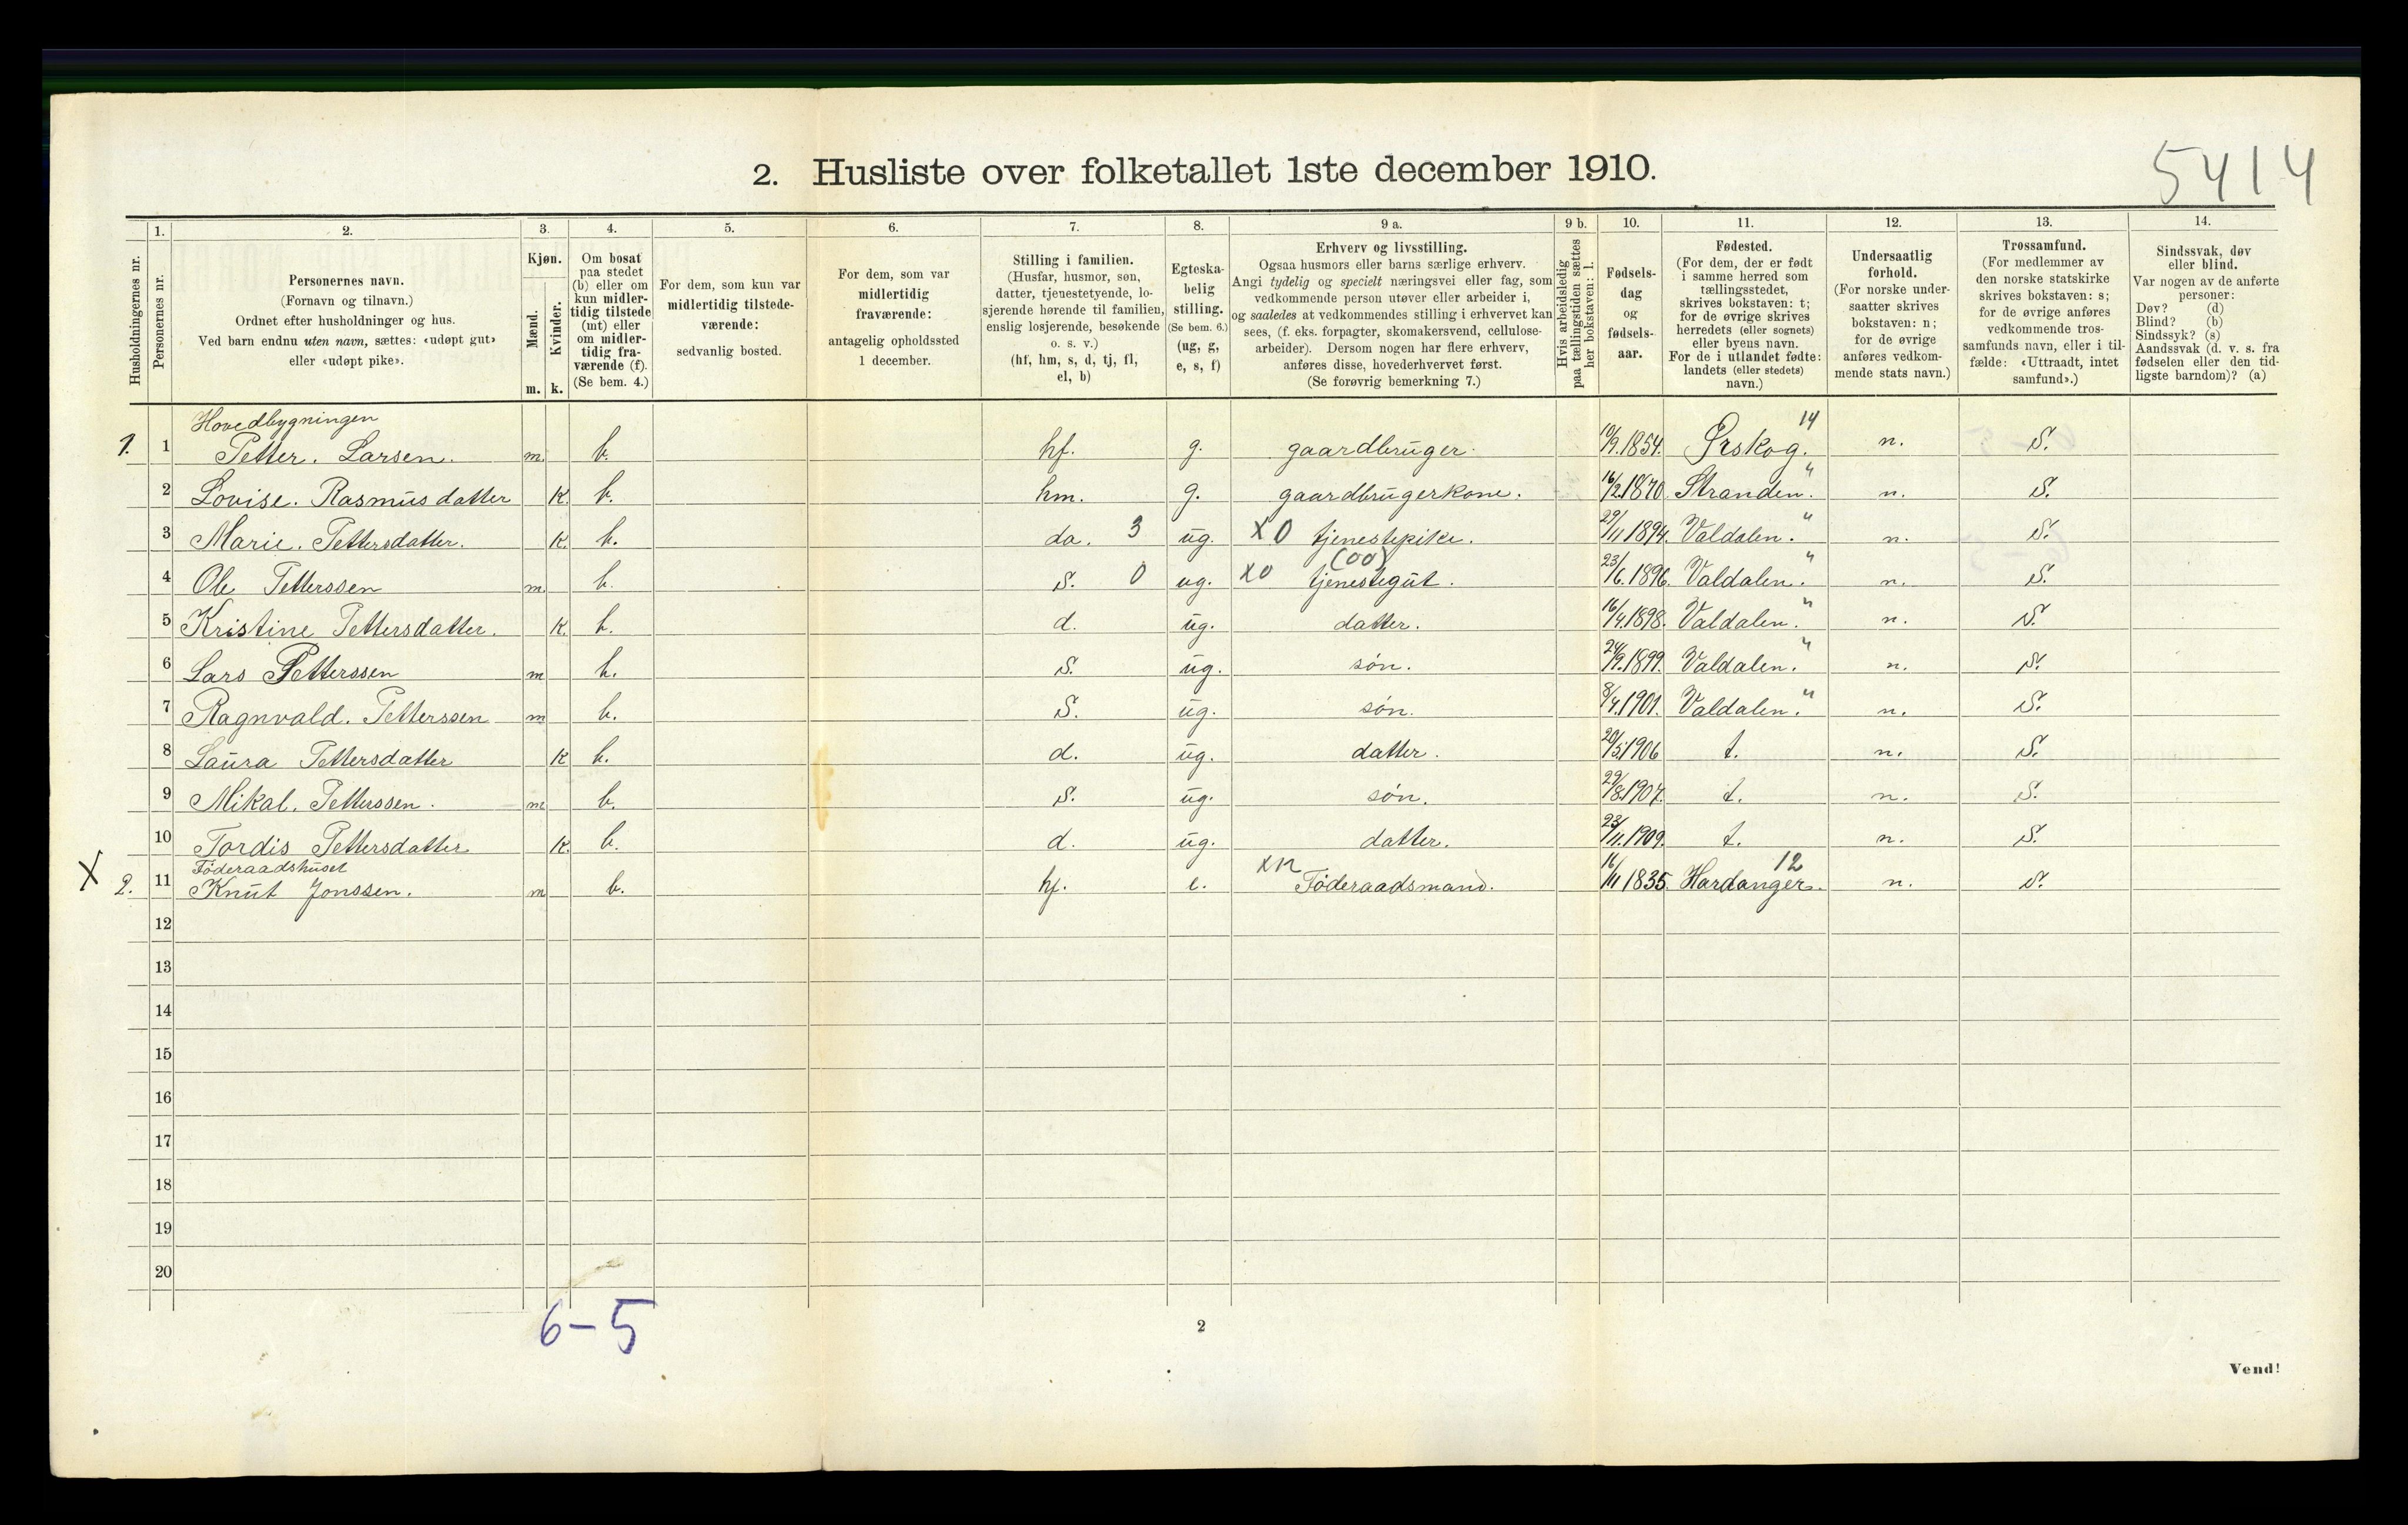 5414
2. Husliste over folketallet 1ste december 1910.
1. 2. 3. 4. 5. 6. 7. 8. 9 a. 9 b. 10. 11. 12. 13. 14.
Husholdningernes nr.
Personernes nr.
Personernes navn.
(Fornavn og tilnavn.)
Ordnet efter husholdninger og hus.
Ved barn endnu uten navn, sættes: «udøpt gut»
eller «udøpt pike».
Kjøn.
Mænd.
Kvinder.
m. k.
Om bosat
paa stedet
(b) eller om
kun midler-
tidig tilstede
(mt) eller
om midler-
tidig fra-
værende (f).
(Se bem. 4.)
For dem, som kun var
midlertidig tilstede-
værende:
sedvanlig bosted.
For dem, som var
midlertidig
fraværende:
antagelig opholdssted
1 december.
Stilling i familien.
(Husfar, husmor, søn,
datter, tjenestetyende, lo-
sjerende hørende til familien,
enslig losjerende, besøkende
o. s. v.)
(hf, hm, s, d, tj, fl,
el, b)
Egteska-
belig
stilling.
(Se bem. 6.)
(ug, g,
e, s, f)
Erhverv og livsstilling.
Ogsaa husmors eller barns særlige erhverv.
Angi tydelig og specielt næringsvei eller fag, som
vedkommende person utøver eller arbeider i,
og saaledes at vedkommendes stilling i erhvervet kan
sees, (f. eks. forpagter, skomakersvend, cellulose-
arbeider). Dersom nogen har flere erhverv,
anføres disse, hovederhvervet først.
(Se forøvrig bemerkning 7.)
Hvis arbeidsledig
paa tællingstiden sættes
her bokstaven: l.
Fødsels-
dag
og
fødsels-
aar.
Fødested.
(For dem, der er født
i samme herred som
tællingsstedet,
skrives bokstaven: t;
for de øvrige skrives
herredets (eller sognets)
eller byens navn.
For de i utlandet fødte:
landets (eller stedets)
navn.)
Undersaatlig
forhold.
(For norske under-
saatter skrives
bokstaven: n;
for de øvrige
anføres vedkom-
mende stats navn.)
Trossamfund.
(For medlemmer av
den norske statskirke
skrives bokstaven: s;
for de øvrige anføres
vedkommende tros-
samfunds navn, eller i til-
fælde: «Uttraadt, intet
samfund».)
Sindssvak, døv
eller blind.
Var nogen av de anførte
personer:
Døv? (d)
Blind? (b)
Sindssyk? (s)
Aandssvak (d. v. s. fra
fødselen eller den tid-
ligste barndom)? (a)
Hovedbygningen 14
1. 1 Petter. Larsen. m. b. hf. g. gaardbruger. 10/9.1854. Ørskog. n. S.
2 Lovise. Rasmusdatter K. b. hm. g. gaardbrugerkone. 16/2.1870. Stranden. " n. S.
3 Marie. Pettersdatter. K. b. da. 3 ug. X0 tjenestepike. 29/11 1894. Valdalen. " n. S.
(00)
4 Ole Petterssen m b. S. 0 ug. X0 tjenestegut. 23/6.1896. Valdalen. " n. S.
5 Kristine Pettersdatter. K. b. d. ug. datter. 16/4.1898. Valdalen. " n. S.
6 Lars Petterssen m b. S. ug. søn. 24/9.1899. Valdalen. " n. S.
7 Ragnvald. Petterssen m b. S. ug. søn. 8/4.1901. Valdalen. " n. S.
8 Laura Pettersdatter K b. d. ug. datter. 20/5.1906 t. n. S.
9 Mikal. Petterssen. m b. S. ug. søn. 29/8.1907. t. n. S.
10 Tordis Pettersdatter K. b. d. ug. datter. 23/11.1909. t. n. S.
X Föderaadshuset xn 12
2. 11 Knut Jonssen. m b. hf. e. Föderaadsmand. 16/11 1835. Hardanger. n. S.
12
13
14
15
16
17
18
19
20
6-5
2
Vend!